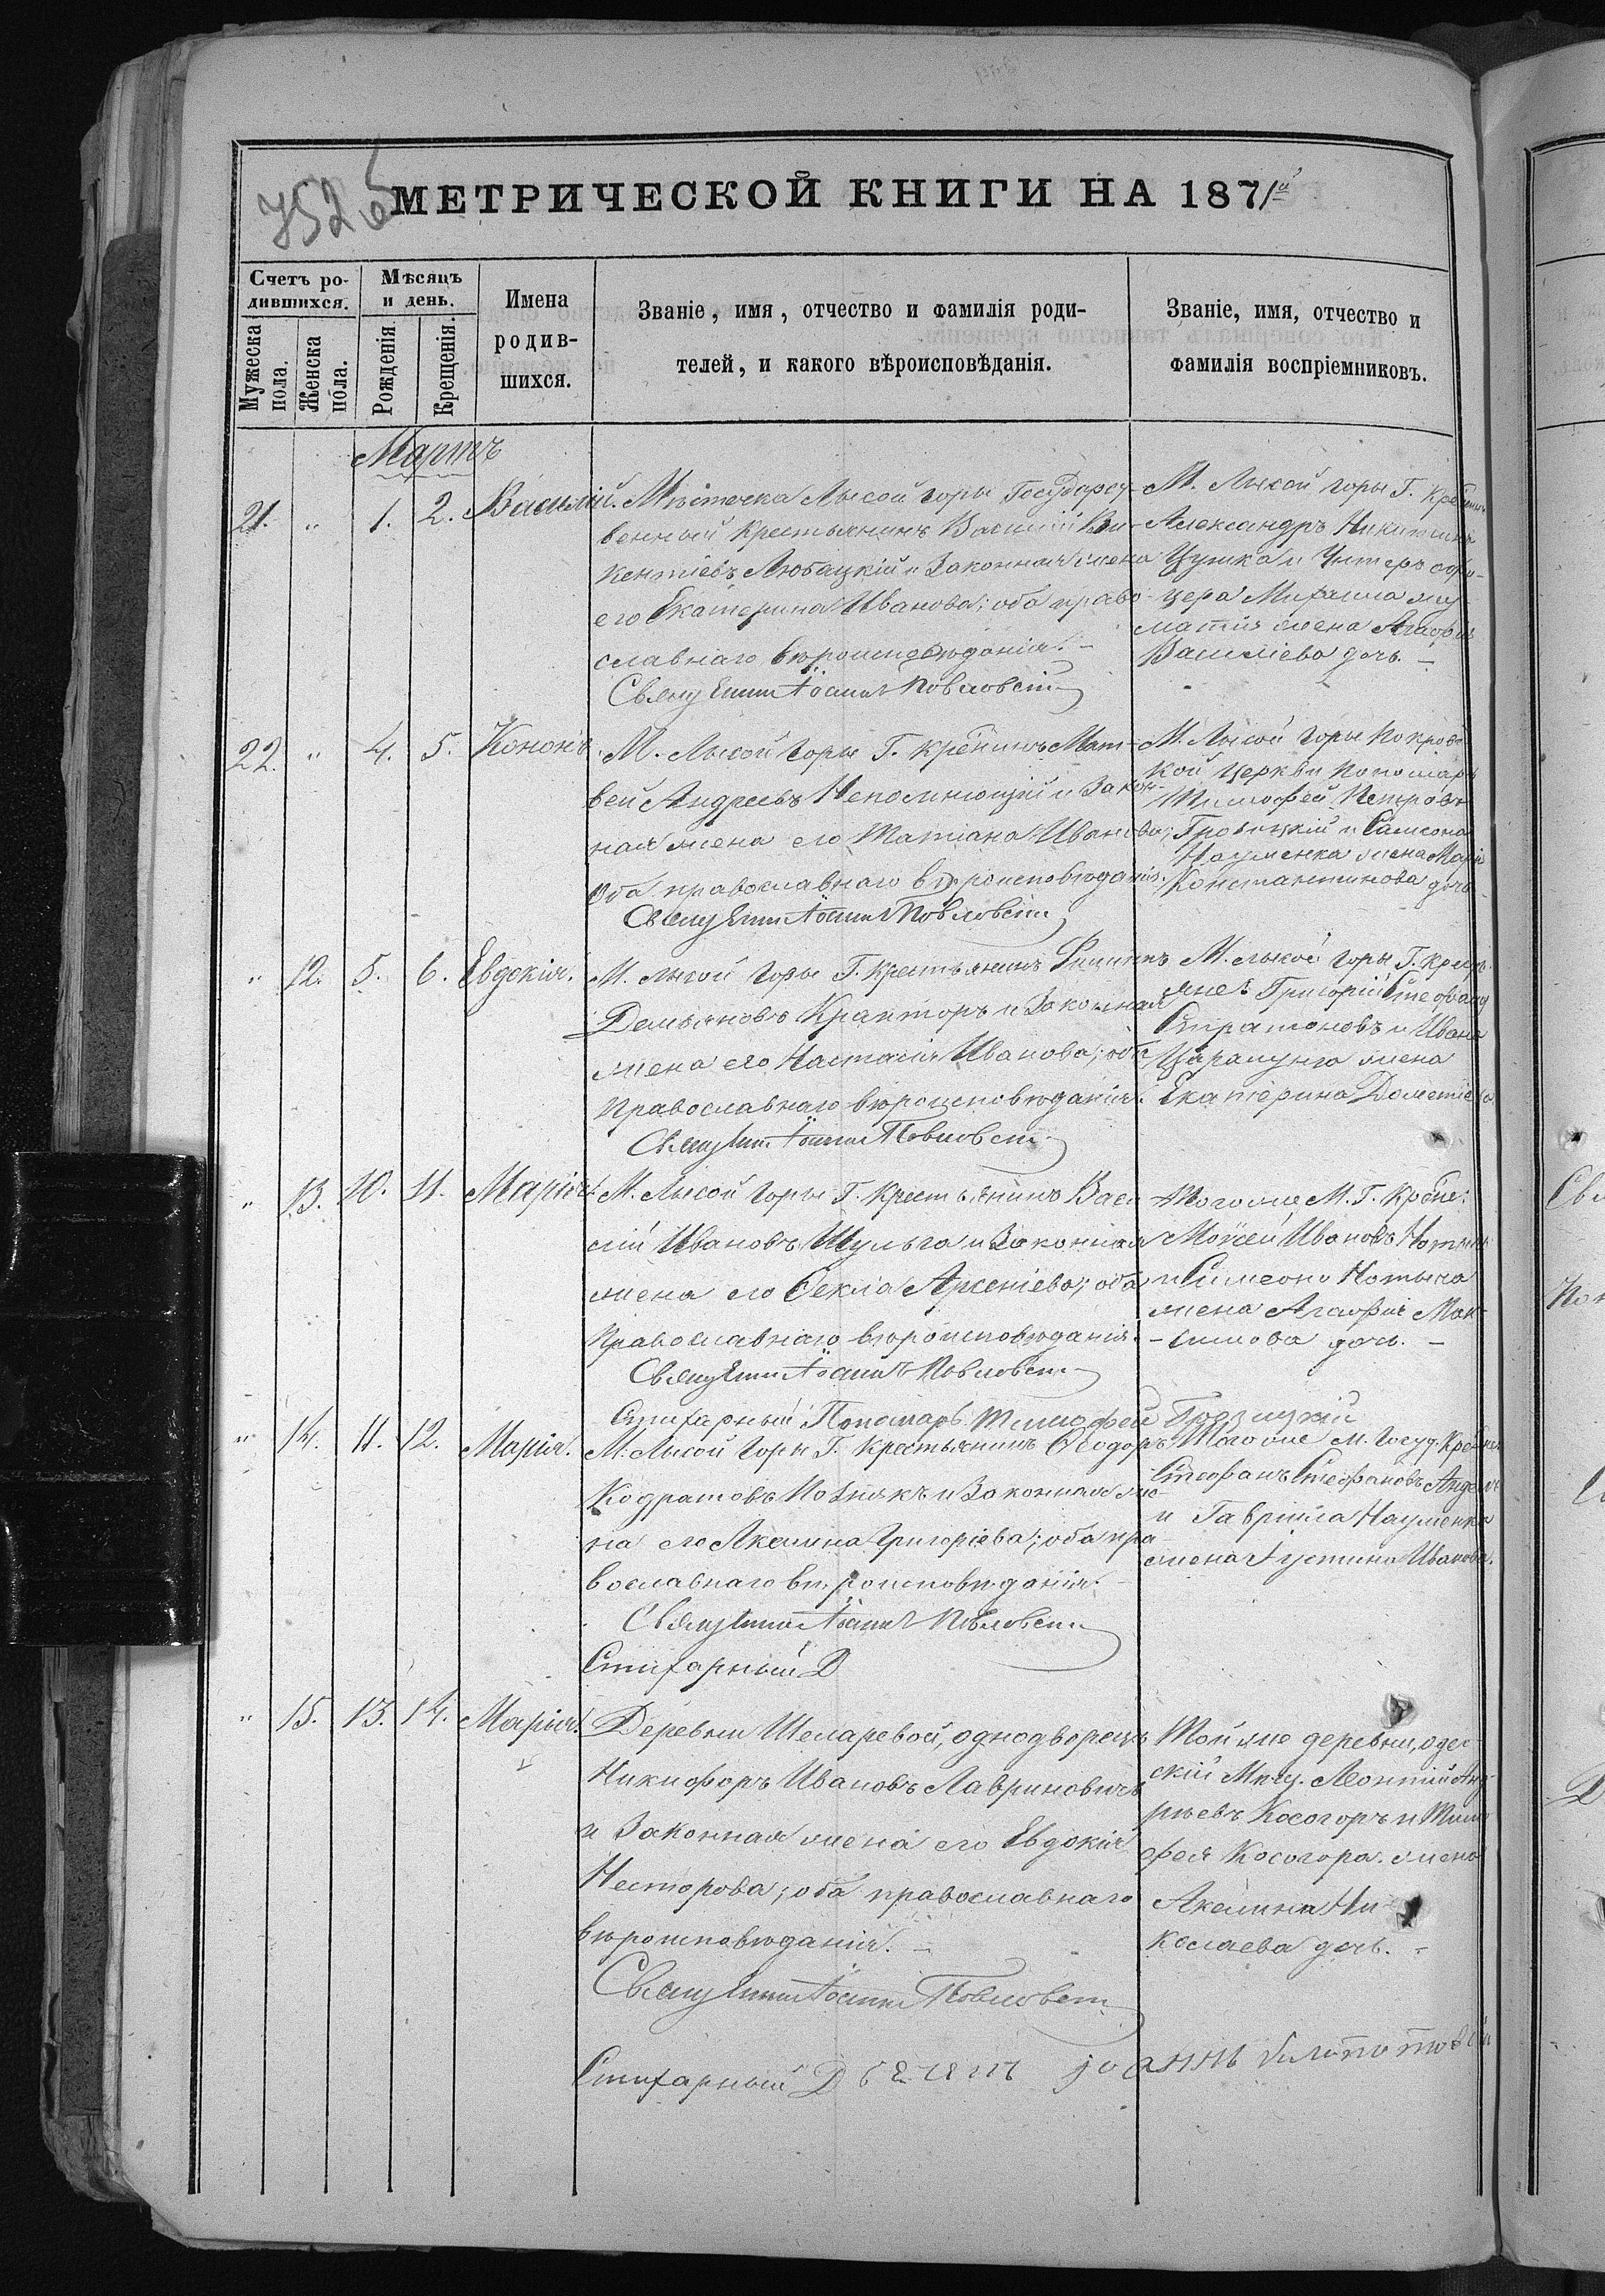 752
МЕТРИЧЕСКОЙ КНИГИ НА 1871й
Счетъ родившихся.
Мужеска пола.
Женска пола.
Мѣсяцъ и день.
Рожденія.
Крещенія.
Имена родив-
шихся.
Званіе, имя, отчество и фамилія роди-
телей, и какого вѣроисповѣданія.
Званіе, имя, отчество и
фамилія воспріемниковъ.
Мартъ
21. " 1. 2. Василій.
Мѣстечка Лысой горы Государст-
венный крестьянинъ Василій Ви-
кентіевъ Любацкій и законная жена
его Екатерина Иванова; оба право-
славнаго вѣроисповѣданія. -
Священникъ Іоаннъ Павловскій
М. Лысой горы Г. крестьнинъ
Александръ Никитинъ
Цушка и Унтеръ офи-
цера Михаила
жена Агафія
Василіева дочь. -
22. " 4. 5. Кононъ.
М. Лысой горы Г. крестнинъ Мат-
вей Андреевъ Непомнющій и закон-
ная жена его Татіана Иванова;
оба православнаго вѣроисповѣданія.
Священникъ Іоаннъ Павловскій
М. Лысой горы Покровс-
кой церкви Пономарь
Тимофей Петровъ
Грозицкій и Самсона
Науменка жена Марія
Константинова дочь
" 12. 5. 6. Евдокія.
М. Лысой горы Г. крестьянинъ Филиппъ
Демьяновъ Крамторъ и законная
жена его Настасія Иванова; оба
православнаго вѣроисповѣданія.
Священникъ Іоаннъ Павловскій
М. Лысой горы Г. крестья-
не: Григорій Стефановъ
Стратоновъ и Ивана
Царалунга жена
Екатерина Дометіева
" 13. 10. 11. Марія.
М. Лысой горы Г. крестьянинъ Васи-
лій Ивановъ Шульга и законная
жена его Ѳекла Арсеніева; оба
православнаго вѣроисповѣданія.
Священникъ Іоаннъ Павловскій
Стихарный Пономарь Тимофей Грозицкій
Того же М. Г. крестне:
Моѵсей Ивановъ Нотычъ
и Симеона Нотыча
жена Агафія Мак-
симова дочь. -
" 14. 11. 12. Марія.
М. Лысой горы Г. крестьянинъ Ѳеодоръ
Кодратовъ Познякъ и законная же-
на его Акелина Григоріева; оба пра-
вославнаго вѣроисповѣданія.
Священникъ Іоаннъ Павловскій
Стихарный Д
Того же м. Госуд. крестне
Стефанъ Стефановъ
и Гавріила Науменка
жена Іустина Иванова.
" 15. 13. 14. Марія.
Деревни Шеларевой, однодворецъ
Никифоръ Ивановъ Лавриновичъ
и законная жена его Евдокія
Несторова; оба православнаго
вѣроисповѣданія. -
Священникъ Іоаннъ Павловскій
Стихарный Д
Той же деревни, одес-
скій Мѣщ. Леонтій Анд-
рѣевъ Косогоръ и Тимо-
фея Косогора жена
Акелина Ни-
колаева дочь. -